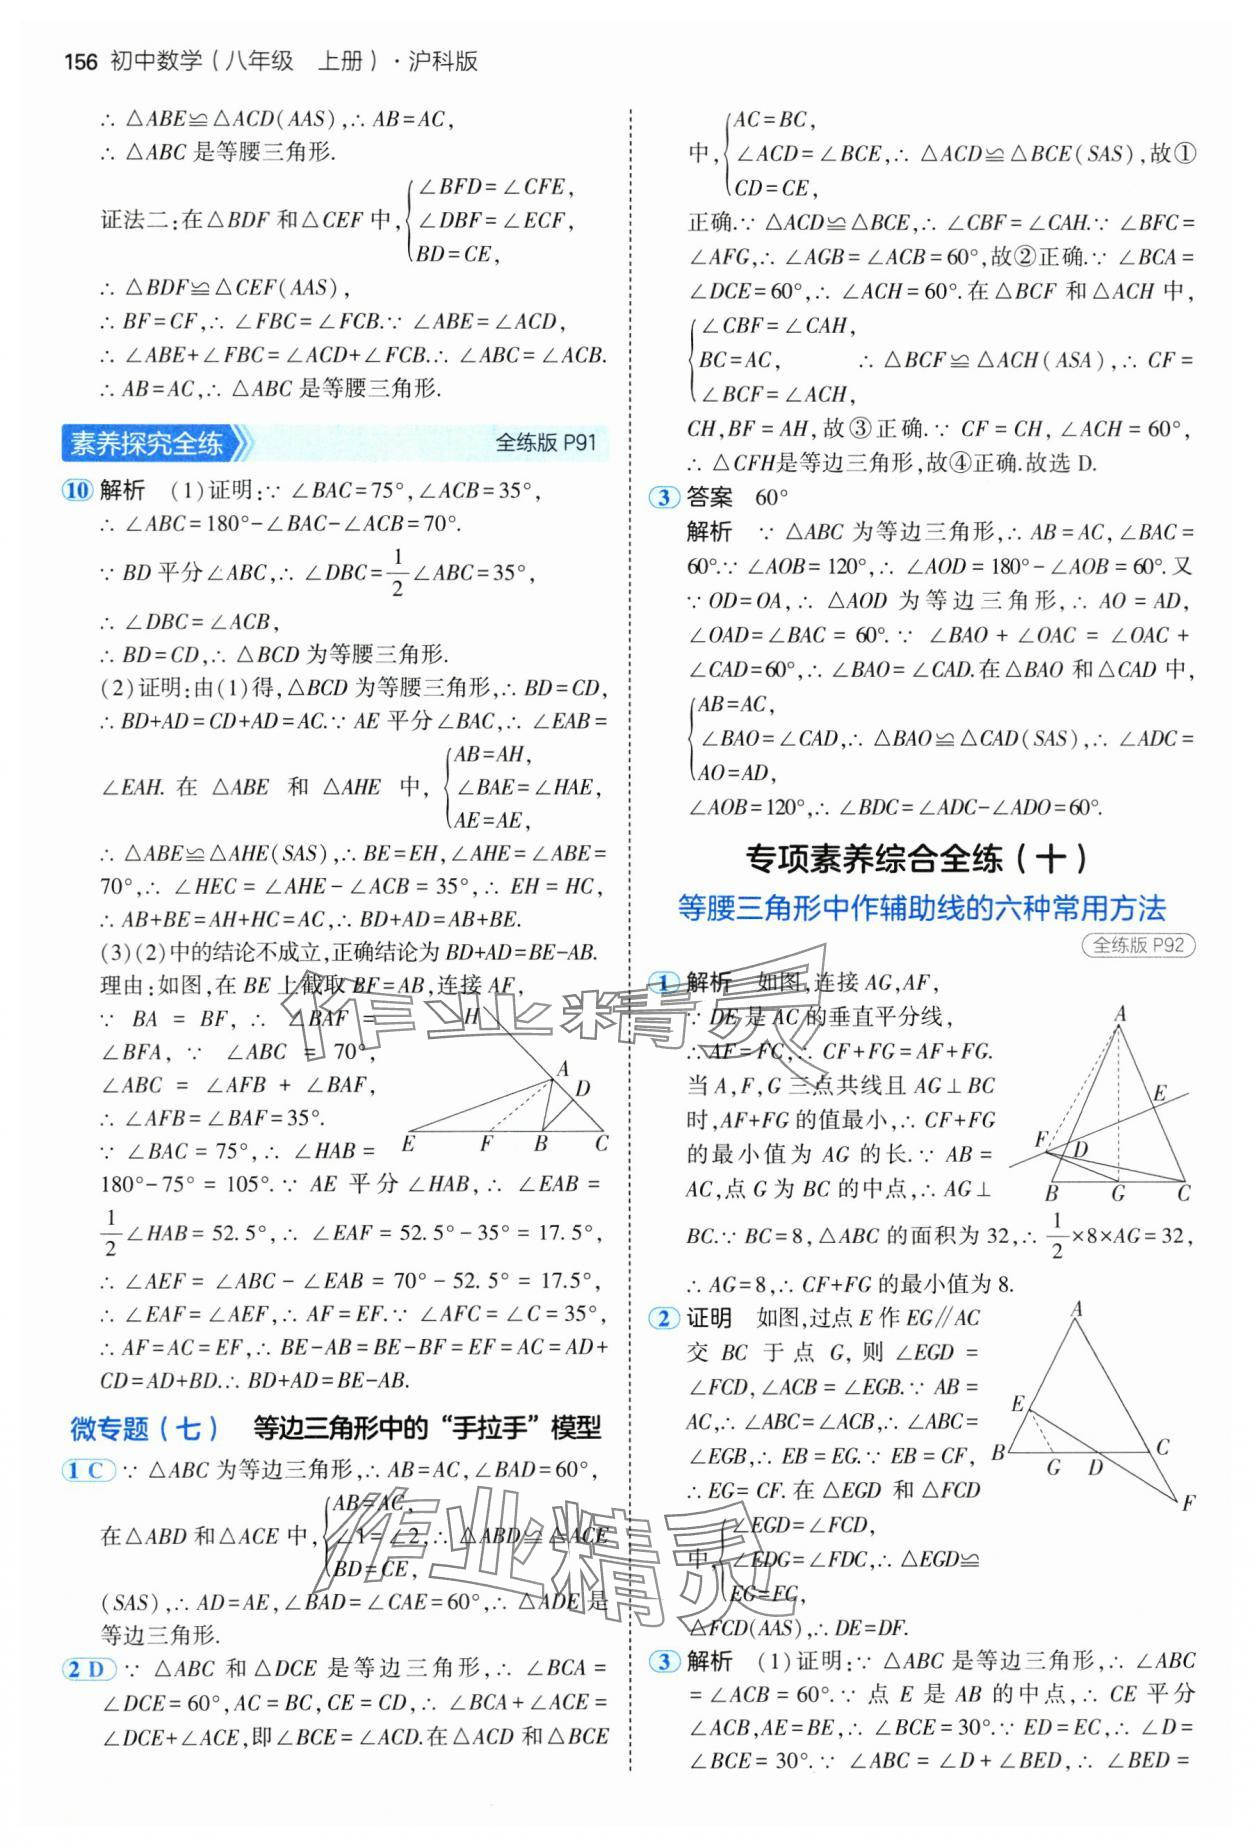 156 初中数学(八年级 上册)·沪科版
∴ △ABE≌△ACD(AAS),∴ AB=AC,
∴ △ABC 是等腰三角形.
证法二:在△BDF 和△CEF 中,{∠BFD=∠CFE,
∠DBF=∠ECF,
BD=CE,
∴ △BDF≌△CEF(AAS),
∴ BF=CF,∴ ∠FBC=∠FCB.∵ ∠ABE=∠ACD,
∴ ∠ABE+∠FBC=∠ACD+∠FCB.∴ ∠ABC=∠ACB.
∴ AB=AC,∴ △ABC 是等腰三角形.
素养探究全练 全练版 P91
10 解析 (1)证明:∵ ∠BAC=75°,∠ACB=35°,
∴ ∠ABC=180°-∠BAC-∠ACB=70°.
∵ BD 平分∠ABC,∴ ∠DBC=1/2∠ABC=35°,
∴ ∠DBC=∠ACB,
∴ BD=CD,∴ △BCD 为等腰三角形.
(2)证明:由(1)得,△BCD 为等腰三角形,∴ BD=CD,
∴ BD+AD=CD+AD=AC.∵ AE 平分∠BAC,∴ ∠EAB=
∠EAH. 在 △ABE 和 △AHE 中,{AB=AH,
∠BAE=∠HAE,
AE=AE,
∴ △ABE≌△AHE(SAS),∴ BE=EH,∠AHE=∠ABE=
70°,∴ ∠HEC=∠AHE-∠ACB=35°,∴ EH=HC,
∴ AB+BE=AH+HC=AC,∴ BD+AD=AB+BE.
(3)(2)中的结论不成立,正确结论为 BD+AD=BE-AB.
理由:如图,在 BE 上截取 BF=AB,连接 AF,
∵ BA = BF, ∴ ∠BAF =
∠BFA, ∵ ∠ABC = 70°,
∠ABC = ∠AFB + ∠BAF,
∴ ∠AFB=∠BAF=35°.
∵ ∠BAC=75°,∴ ∠HAB=
H
A
D
E F B C
180°-75°=105°.∵ AE 平分∠HAB,∴ ∠EAB=
1/2∠HAB=52.5°,∴ ∠EAF=52.5°-35°=17.5°,
∴ ∠AEF=∠ABC-∠EAB=70°-52.5°=17.5°,
∴ ∠EAF=∠AEF,∴ AF=EF.∵ ∠AFC=∠C=35°,
∴ AF=AC=EF,∴ BE-AB=BE-BF=EF=AC=AD+
CD=AD+BD.∴ BD+AD=BE-AB.
微专题(七) 等边三角形中的“手拉手”模型
1 C ∵ △ABC 为等边三角形,∴ AB=AC,∠BAD=60°,
在△ABD 和△ACE 中,{AB=AC,
∠1=∠2,∴ △ABD≌△ACE
BD=CE,
(SAS),∴ AD=AE,∠BAD=∠CAE=60°,∴ △ADE 是
等边三角形.
2 D ∵ △ABC 和△DCE 是等边三角形,∴ ∠BCA=
∠DCE=60°,AC=BC,CE=CD,∴ ∠BCA+∠ACE=
∠DCE+∠ACE,即∠BCE=∠ACD.在△ACD 和△BCE
中,{AC=BC,
∠ACD=∠BCE,∴ △ACD≌△BCE(SAS),故①
CD=CE,
正确.∵ △ACD≌△BCE,∴ ∠CBF=∠CAH.∵ ∠BFC=
∠AFG,∴ ∠AGB=∠ACB=60°,故②正确.∵ ∠BCA=
∠DCE=60°,∴ ∠ACH=60°.在△BCF 和△ACH 中,
{∠CBF=∠CAH,
BC=AC, ∴ △BCF≌△ACH(ASA),∴ CF=
∠BCF=∠ACH,
CH,BF=AH,故③正确.∵ CF=CH,∠ACH=60°,
∴ △CFH是等边三角形,故④正确.故选 D.
3 答案 60°
解析 ∵ △ABC 为等边三角形,∴ AB=AC,∠BAC=
60°.∵ ∠AOB=120°,∴ ∠AOD=180°-∠AOB=60°.又
∵ OD=OA,∴ △AOD 为等边三角形,∴ AO=AD,
∠OAD=∠BAC=60°.∵ ∠BAO+∠OAC=∠OAC+
∠CAD=60°,∴ ∠BAO=∠CAD.在△BAO 和△CAD 中,
{AB=AC,
∠BAO=∠CAD,∴ △BAO≌△CAD(SAS),∴ ∠ADC=
AO=AD,
∠AOB=120°,∴ ∠BDC=∠ADC-∠ADO=60°.
专项素养综合全练(十)
等腰三角形中作辅助线的六种常用方法
全练版 P92
1 解析 如图,连接 AG,AF,
∵ DE 是 AC 的垂直平分线,
∴ AF=FC,∴ CF+FG=AF+FG.
当 A,F,G 三点共线且 AG⊥BC
时,AF+FG 的值最小,∴ CF+FG
的最小值为 AG 的长.∵ AB=
AC,点 G 为 BC 的中点,∴ AG⊥
A
E
F D
B G C
BC.∵ BC=8,△ABC 的面积为 32,∴ 1/2×8×AG=32,
∴ AG=8,∴ CF+FG 的最小值为 8.
2 证明 如图,过点 E 作 EG∥AC
交 BC 于点 G,则∠EGD=
∠FCD,∠ACB=∠EGB.∵ AB=
AC,∴ ∠ABC=∠ACB,∴ ∠ABC=
∠EGB,∴ EB=EG.∵ EB=CF,
∴ EG=CF.在△EGD 和△FCD
A
E
B G D C
F
中,{∠EGD=∠FCD,
∠EDG=∠FDC,∴ △EGD≌
EG=FC,
△FCD(AAS),∴ DE=DF.
3 解析 (1)证明:∵ △ABC 是等边三角形,∴ ∠ABC
=∠ACB=60°.∵ 点 E 是 AB 的中点,∴ CE 平分
∠ACB,AE=BE,∴ ∠BCE=30°.∵ ED=EC,∴ ∠D=
∠BCE=30°.∵ ∠ABC=∠D+∠BED,∴ ∠BED=
作业精灵
作业精灵